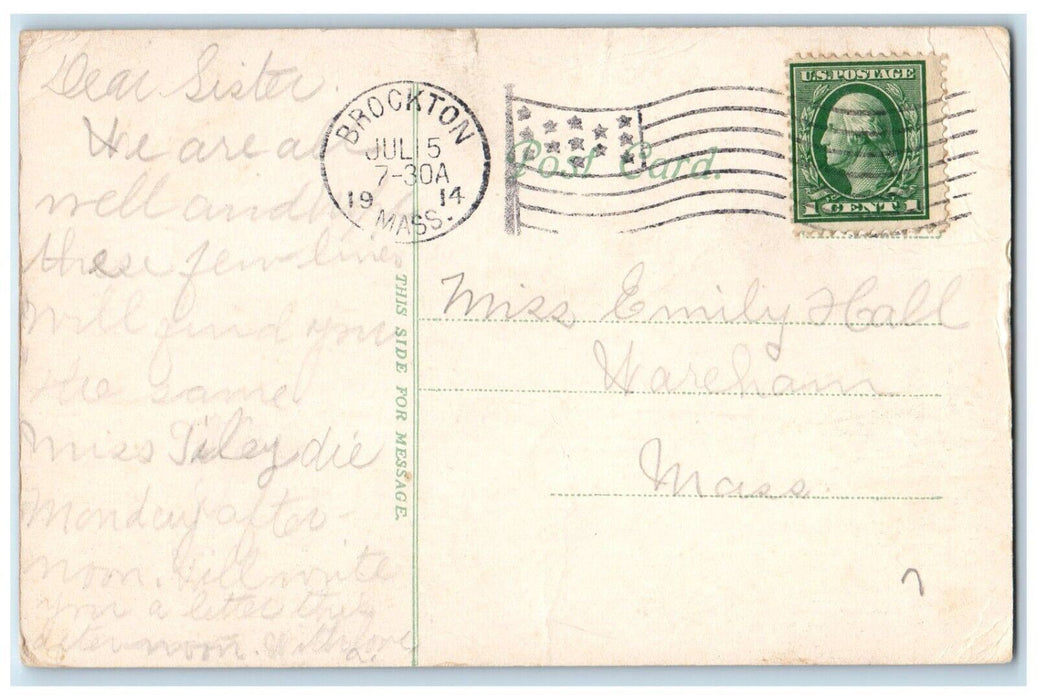 Dear Sister.
We are all
well and hope
these few lines
will find you
the same
Miss Tiley die
Monday after-
noon. Will write
you a letter this
afternoon. With love
BROCKTON
JUL 5
7-30A
19 14
MASS.
Post Card.
U.S. POSTAGE
1 CENT 1
THIS SIDE FOR MESSAGE.
Miss Emily Hall
Wareham
Mass.